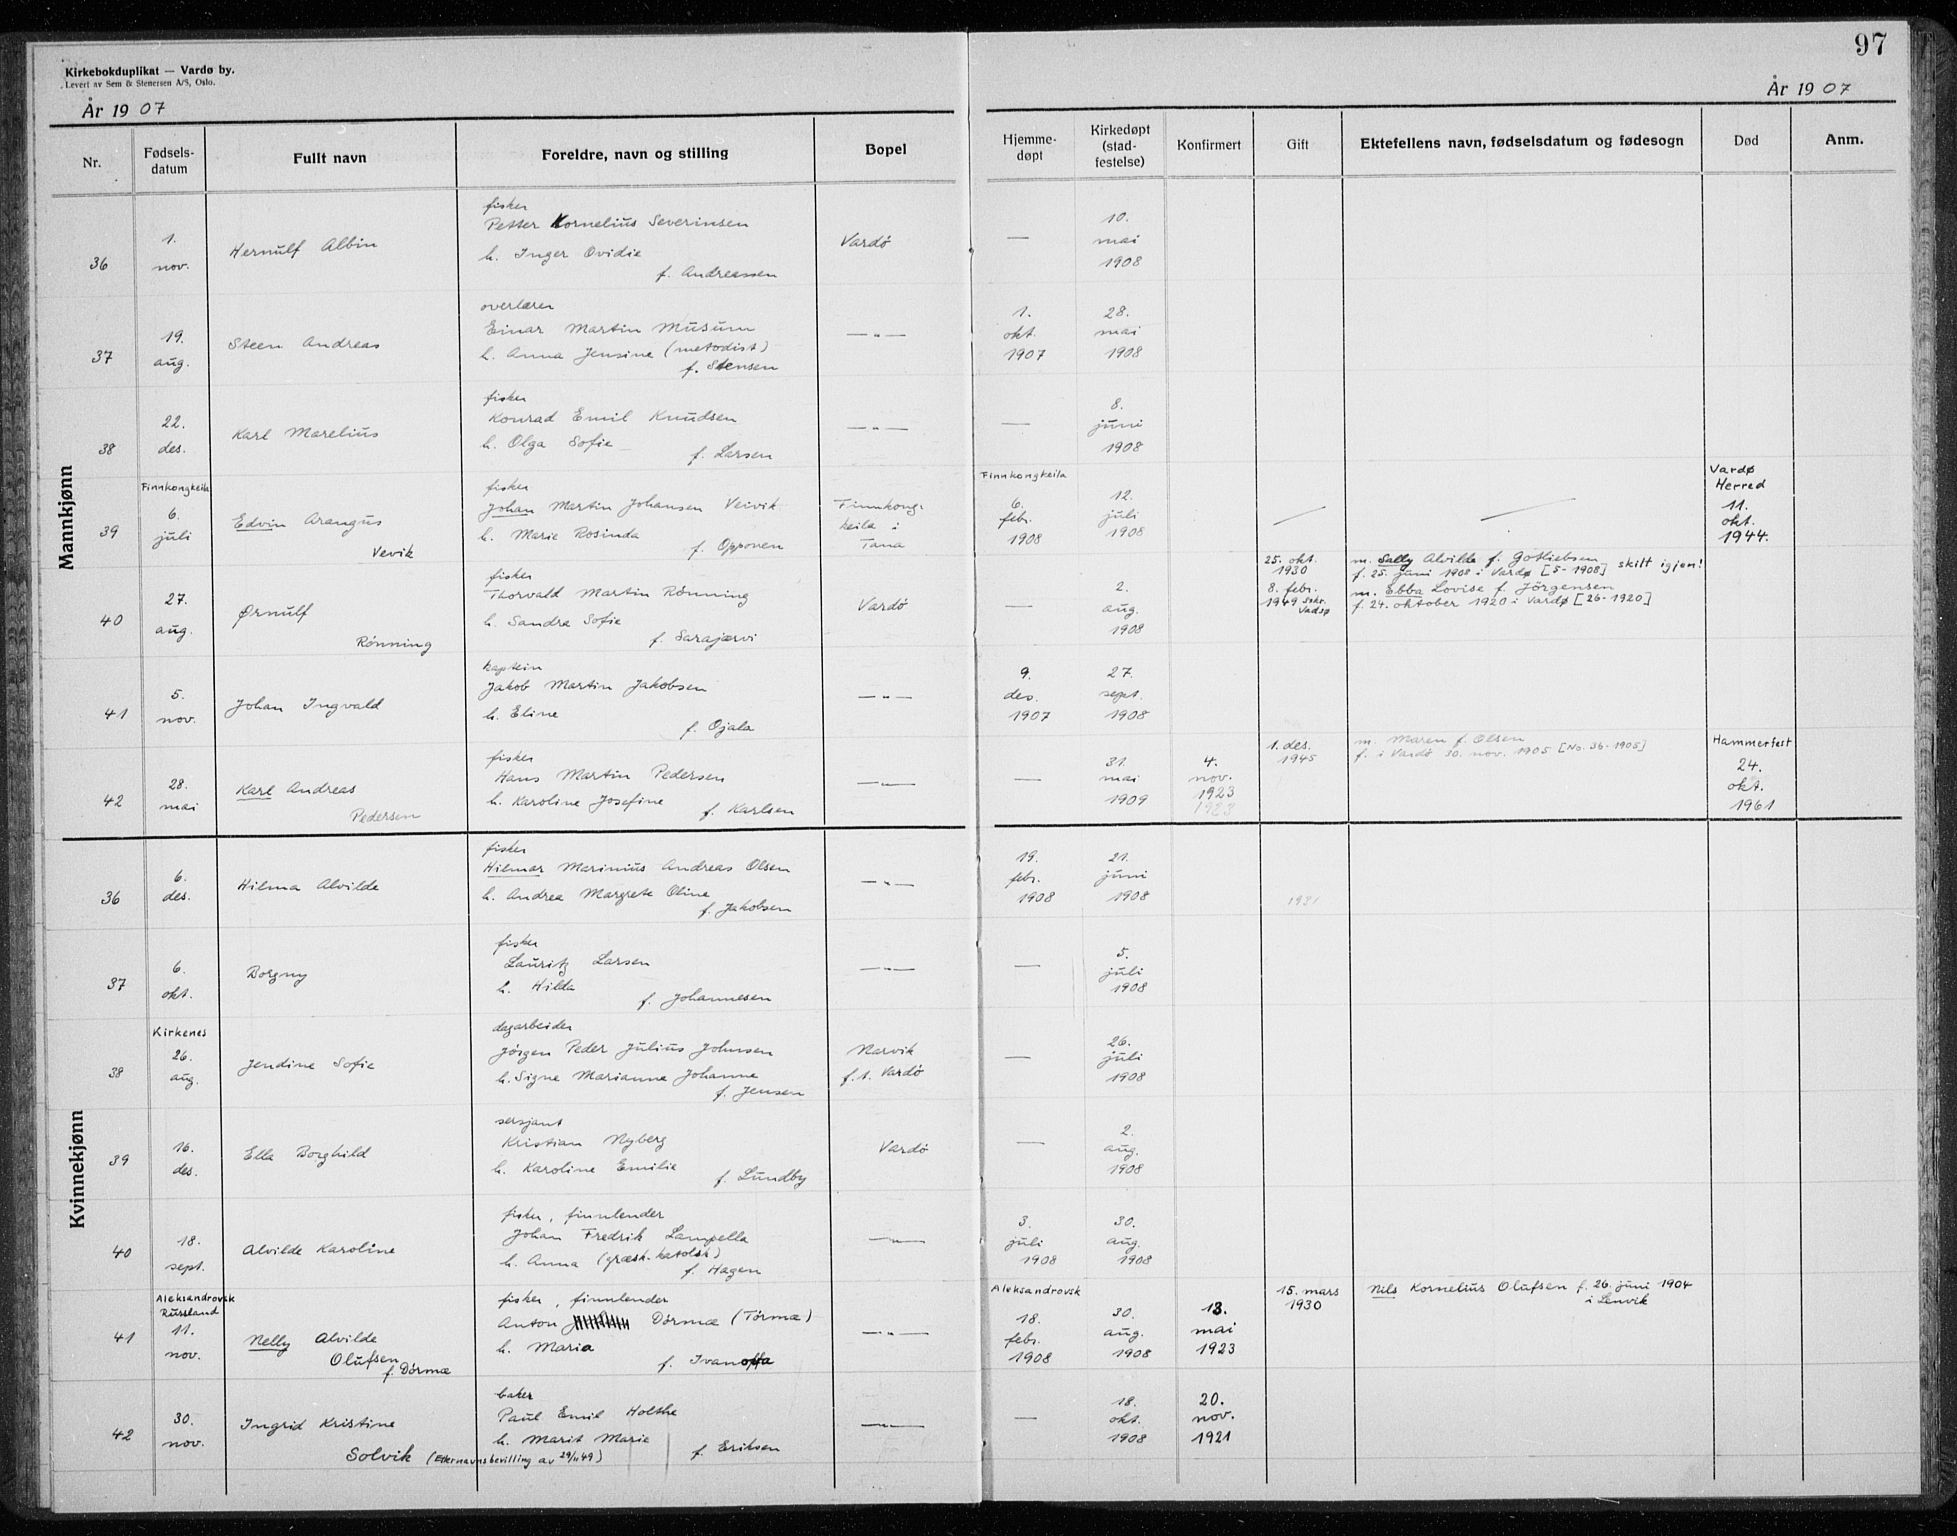 97
Kirkebokduplikat — Vardø by.
Levert av Sem & Stenersen A/S, Oslo.
År 1907
År 1907
Nr. Fødselsdatum Fullt navn Foreldre, navn og stilling Bopel Hjemmedøpt Kirkedøpt (stadfestelse) Konfirmert Gift Ektefellens navn, fødselsdatum og fødesogn Død Anm.
Mannkjønn
fisker
36 1. nov. Hernulf Albin Petter Kornelius Severinsen Vardö — 10. mai 1908
h. Inger Ovidie
f. Andreassen
overlærer
37 19. aug. Steen Andreas Einar Martin Musum —"— 1. okt. 1907 28. mai 1908
h. Anna Jensine (metodist)
f. Stensen
fisker
38 22. des. Karl Marelius Konrad Emil Knudsen —"— — 8. juni 1908
h. Olga Sofie
f. Larsen
Finnkongkeila fisker Finnkongkeila Vardø Herred
39 6. juli Edvin Arangus Johan Martin Johansen Veivik Finnkongkeila i Tana 6. febr. 1908 12. juli 1908 — — 11. okt. 1944.
Vevik h. Marie Rosinda
f. Opponen
fisker 25. okt. 1930 m. Sally Alvilde f. Gotliebsen
f. 25. juni 1908 i Vardø [5-1908] skilt igjen!
40 27. aug. Ørnulf Thorvald Martin Rönning Vardö — 2. aug. 1908 8. febr. 1949 Sskr. Vadsø m. Ebba Lovise f. Jörgensen
f. 24. oktober 1920 i Vardø [26-1920]
Rönning h. Sandra Sofie
f. Sarajærvi
kaptein
41 5. nov. Johan Ingvald Jakob Martin Jakobsen —"— 9. des. 1907 27. sept. 1908
h. Eline
f. Ojala
fisker 1. des. 1945 m. Maren f. Olsen Hammerfest
f. i Vardö 30. nov. 1905 [No. 36-1905]
42 28. mai Karl Andreas Hans Martin Pedersen —"— — 31. mai 1909 4. nov. 1923 24. okt. 1961
1923
Pedersen h. Karoline Josefine
f. Karlsen
Kvinnekjønn
fisker
36 6. des. Hilma Alvilde Hilmar Marinius Andreas Olsen —"— 19. febr. 1908 21. juni 1908 1931
h. Andrea Margrete Oline
f. Jakobsen
fisker
37 6. okt. Borgny Lauritz Larsen —"— — 5. juli 1908
h. Hilda
f. Johannesen
Kirkenes dagarbeider
38 26. aug. Jendine Sofie Jörgen Peder Julius Johnsen Narvik f.t. Vardö — 26. juli 1908
h. Signe Marianne Johanne
f. Jensen
sersjant
39 16. des. Ella Borghild Kristian Nyberg Vardö — 2. aug. 1908
h. Karoline Emilie
f. Lundby
fisker, finnlender
40 18. sept. Alvilde Karoline Johan Fredrik Lampella —"— 3. juli 1908 30. aug. 1908
h. Anna (græsk-katolsk)
f. Hagen
Aleksandrovsk Russland fisker, finnlender Aleksandrovsk
41 11. nov. Nelly Alvilde Anton Dörmæ (Törmæ) —"— 18. febr. 1908 30. aug. 1908 13. mai 1923 15. mars 1930 Nils Kornelius Olufsen f. 26. juni 1904
i Lenvik
Olufsen h. Maria
f. Dörmæ f. Ivanoffa
baker
42 30. nov. Ingrid Kristine Paul Emil Holthe —"— — 18. okt. 1908 20. nov. 1921
h. Marit Marie
f. Eriksen
Solvik (Etternavnsbevilling av 29/11 49)